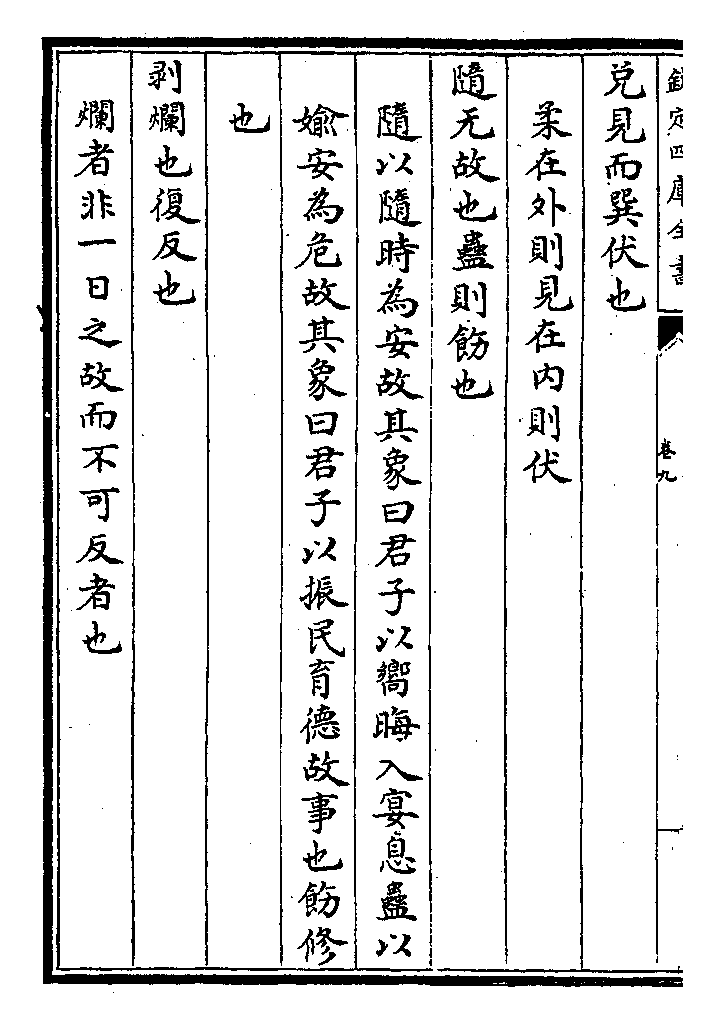 欽定四庫全書
卷九
兌見而巽伏也
柔在外則見在內則伏
隨无故也蠱則飭也
隨以隨時為安故其象曰君子以嚮晦入宴息蠱以
媮安為危故其象曰君子以振民育德故事也飭修
也
剥爛也復反也
爛者非一日之故而不可反者也